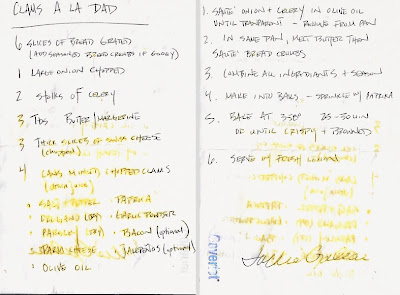 CLAMS A LA DAD
6 SLICES OF BREAD GRATED
(ADD SEASONED BREAD CRUMBS IF GOOEY)
1 LARGE ONION CHOPPED
2 STALKS OF CELERY
3 TBS BUTTER/MARGERINE
3 THICK SLICES OF SWISS CHEESE
(chopped)
4 CANS MINCED CHOPPED CLAMS
• SALT + PEPPER • PAPRIKA
• OREGANO (DRY) • GARLIC POWDER
• PARSLEY (DRY) • BACON (optional)
• PARM CHEESE • JALEPEÑOS (optional)
• OLIVE OIL
1. SAUTÉ ONION + CELERY IN OLIVE OIL
UNTIL TRANSPARENT - REMOVE FROM PAN
2. IN SAME PAN, MELT BUTTER THEN
SAUTÉ BREAD CRUMBS
3. COMBINE ALL INGREDIANTS + SEASON
4. MAKE INTO BALLS - SPRINKLE W/ PAPRIKA
5. BAKE AT 350° 25-30 MIN
OR UNTIL CRISPY + BROWNED
6. SERVE W/ FRESH LEMON